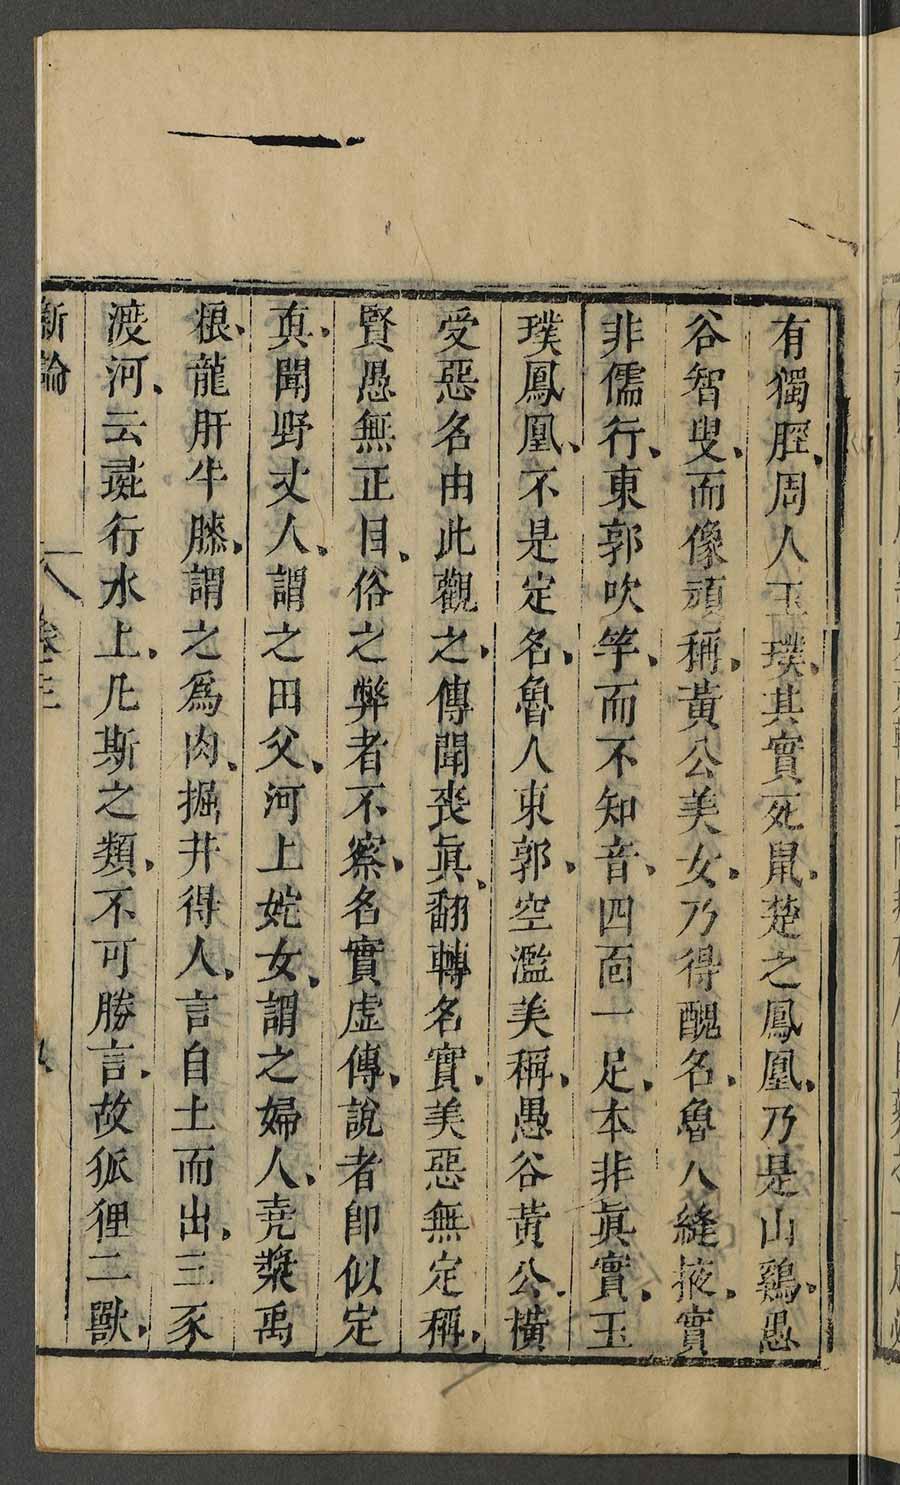 有獨脛、周人玉璞、其實死鼠、楚之鳳凰、乃是山鷄、愚
谷智叟、而像頑稱、黃公美女、乃得醜名、魯人縫掖、實
非儒行、東郭吹竽、而不知音、四面一足、本非眞實、玉
璞鳳凰、不是定名、魯人東郭、空濫美稱、愚谷黃公、橫
受惡名由此觀之、傳聞喪眞、翻轉名實、美惡無定稱、
賢愚無正目、俗之弊者不察、名實虛傳、說者即似定
真、聞野丈人、謂之田父、河上姹女、謂之婦人、堯漿禹
粮、龍肝牛膝、謂之爲肉、掘井得人、言自土而出、三豕
渡河、云彘行水上、凡斯之類、不可勝言、故狐狸二獸、
新論 卷三